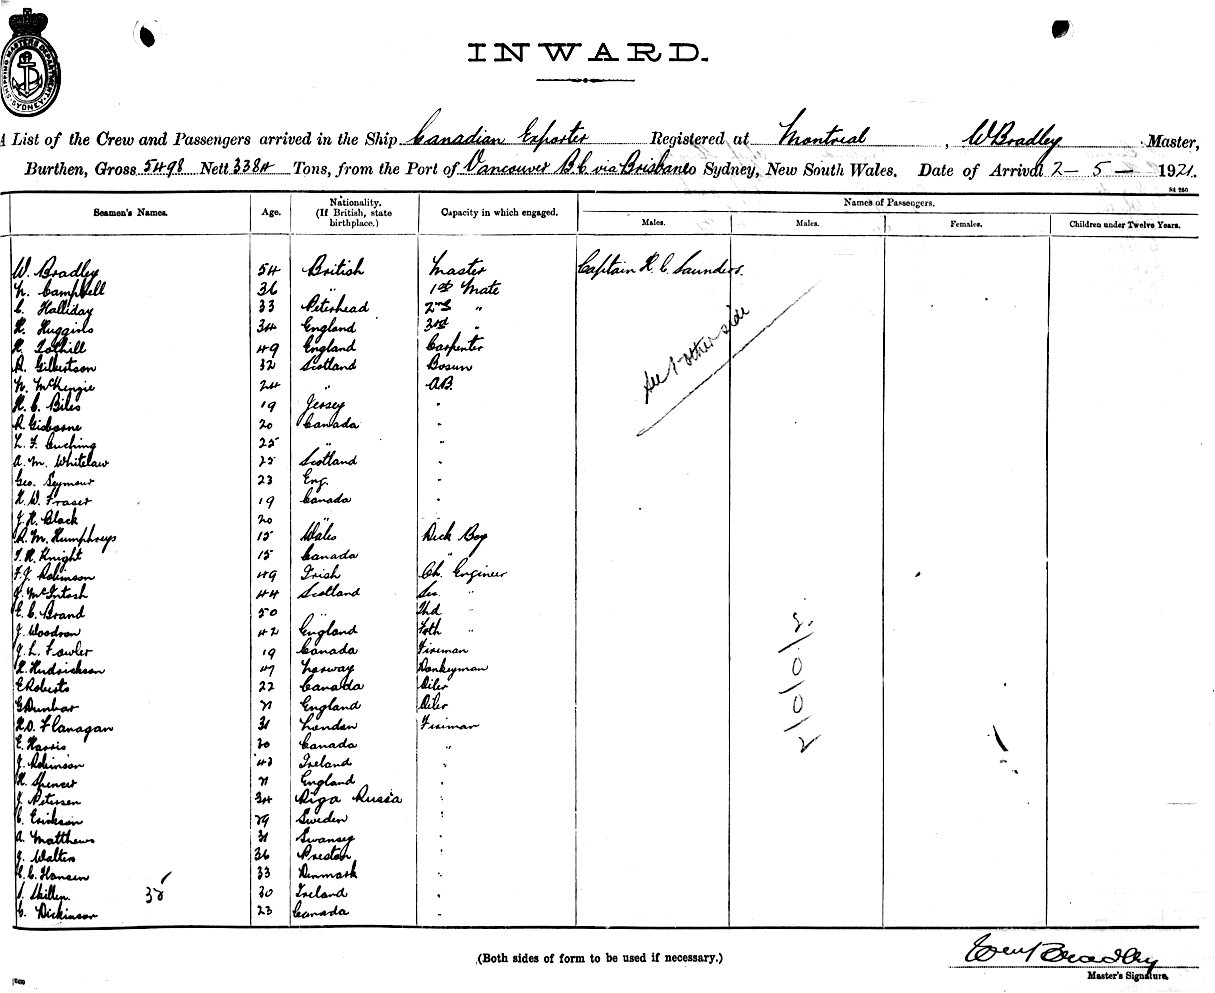 SHIPPING MASTERS DEPARTMENT SYDNEY
INWARD.
A List of the Crew and Passengers arrived in the Ship Canadian Exporter Registered at Montreal, W Bradley Master,
Burthen, Gross 5498 Nett 3384 Tons, from the Port of Vancouver B.C. via Brisbane to Sydney, New South Wales. Date of Arrival 2 - 5 - 1921.
Seamen's Names. Age. Nationality. (If British, state birthplace.) Capacity in which engaged. Names of Passengers.
Males. Males. Females. Children under Twelve Years.
W. Bradley 54 British Master Captain H. C. Saunders.
N. Campbell 36 " 1st Mate
C. Halliday 33 Peterhead 2nd "
H. Huggins 34 England 3rd "
H. Tothill 49 England Carpenter
R. Gilbertson 32 Scotland Bosun
N. McKenzie 24 " A.B.
H. C. Biles 19 Jersey "
R. Gisborne 20 Canada "
L. F. Cushing 25 " "
A. M. Whitelaw 25 Scotland "
Geo. Seymour 23 Eng. "
H. W. Fraser 19 Canada "
J. H. Black 20 " "
R. M. Humphreys 15 Wales Deck Boy
F. H. Knight 15 Canada "
F. J. Robinson 49 Irish Ch. Engineer
J. McIntosh 44 Scotland Sec. "
E. C. Brand 50 " Thd "
J. Woodron 42 England Foth "
J. L. Fowler 19 Canada Fireman
H. Hendrickson 47 Norway Donkeyman
E Roberts 22 Canada Oiler
G Dunbar 21 England Oiler
H. O. Flanagan 31 London Fireman
E. Harris 20 Canada "
J. Robinson 43 Ireland "
H. Spencer 21 England "
J. Petersen 34 Riga Russia "
C. Erickson 29 Sweden "
A. Matthews 31 Swansey "
J. Walters 36 Preston "
C. C. Hansen 33 Denmark "
S. Skillen 35 30 Ireland "
C. Dickinson 23 Canada "
See other side
(Both sides of form to be used if necessary.)
Bradley
Master's Signature.